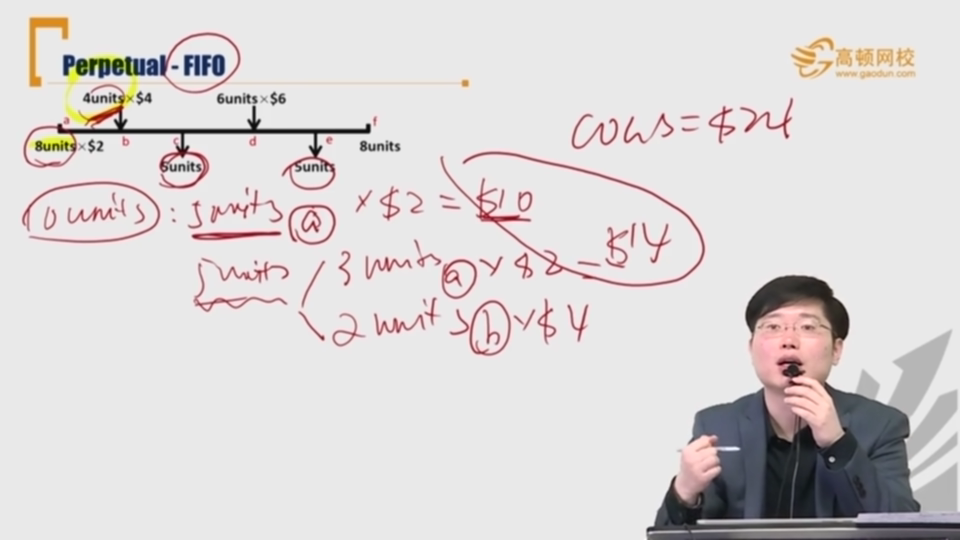 Perpetual - FIFO
高顿网校
www.gaodun.com
4units×$4 6units×$6
a f
8units×$2 b c d e 8units
5units 5units
COGS = $24
10 units : 5 units a × $2 = $10
5 units 3 units a × $2 = $14
2 units b × $4